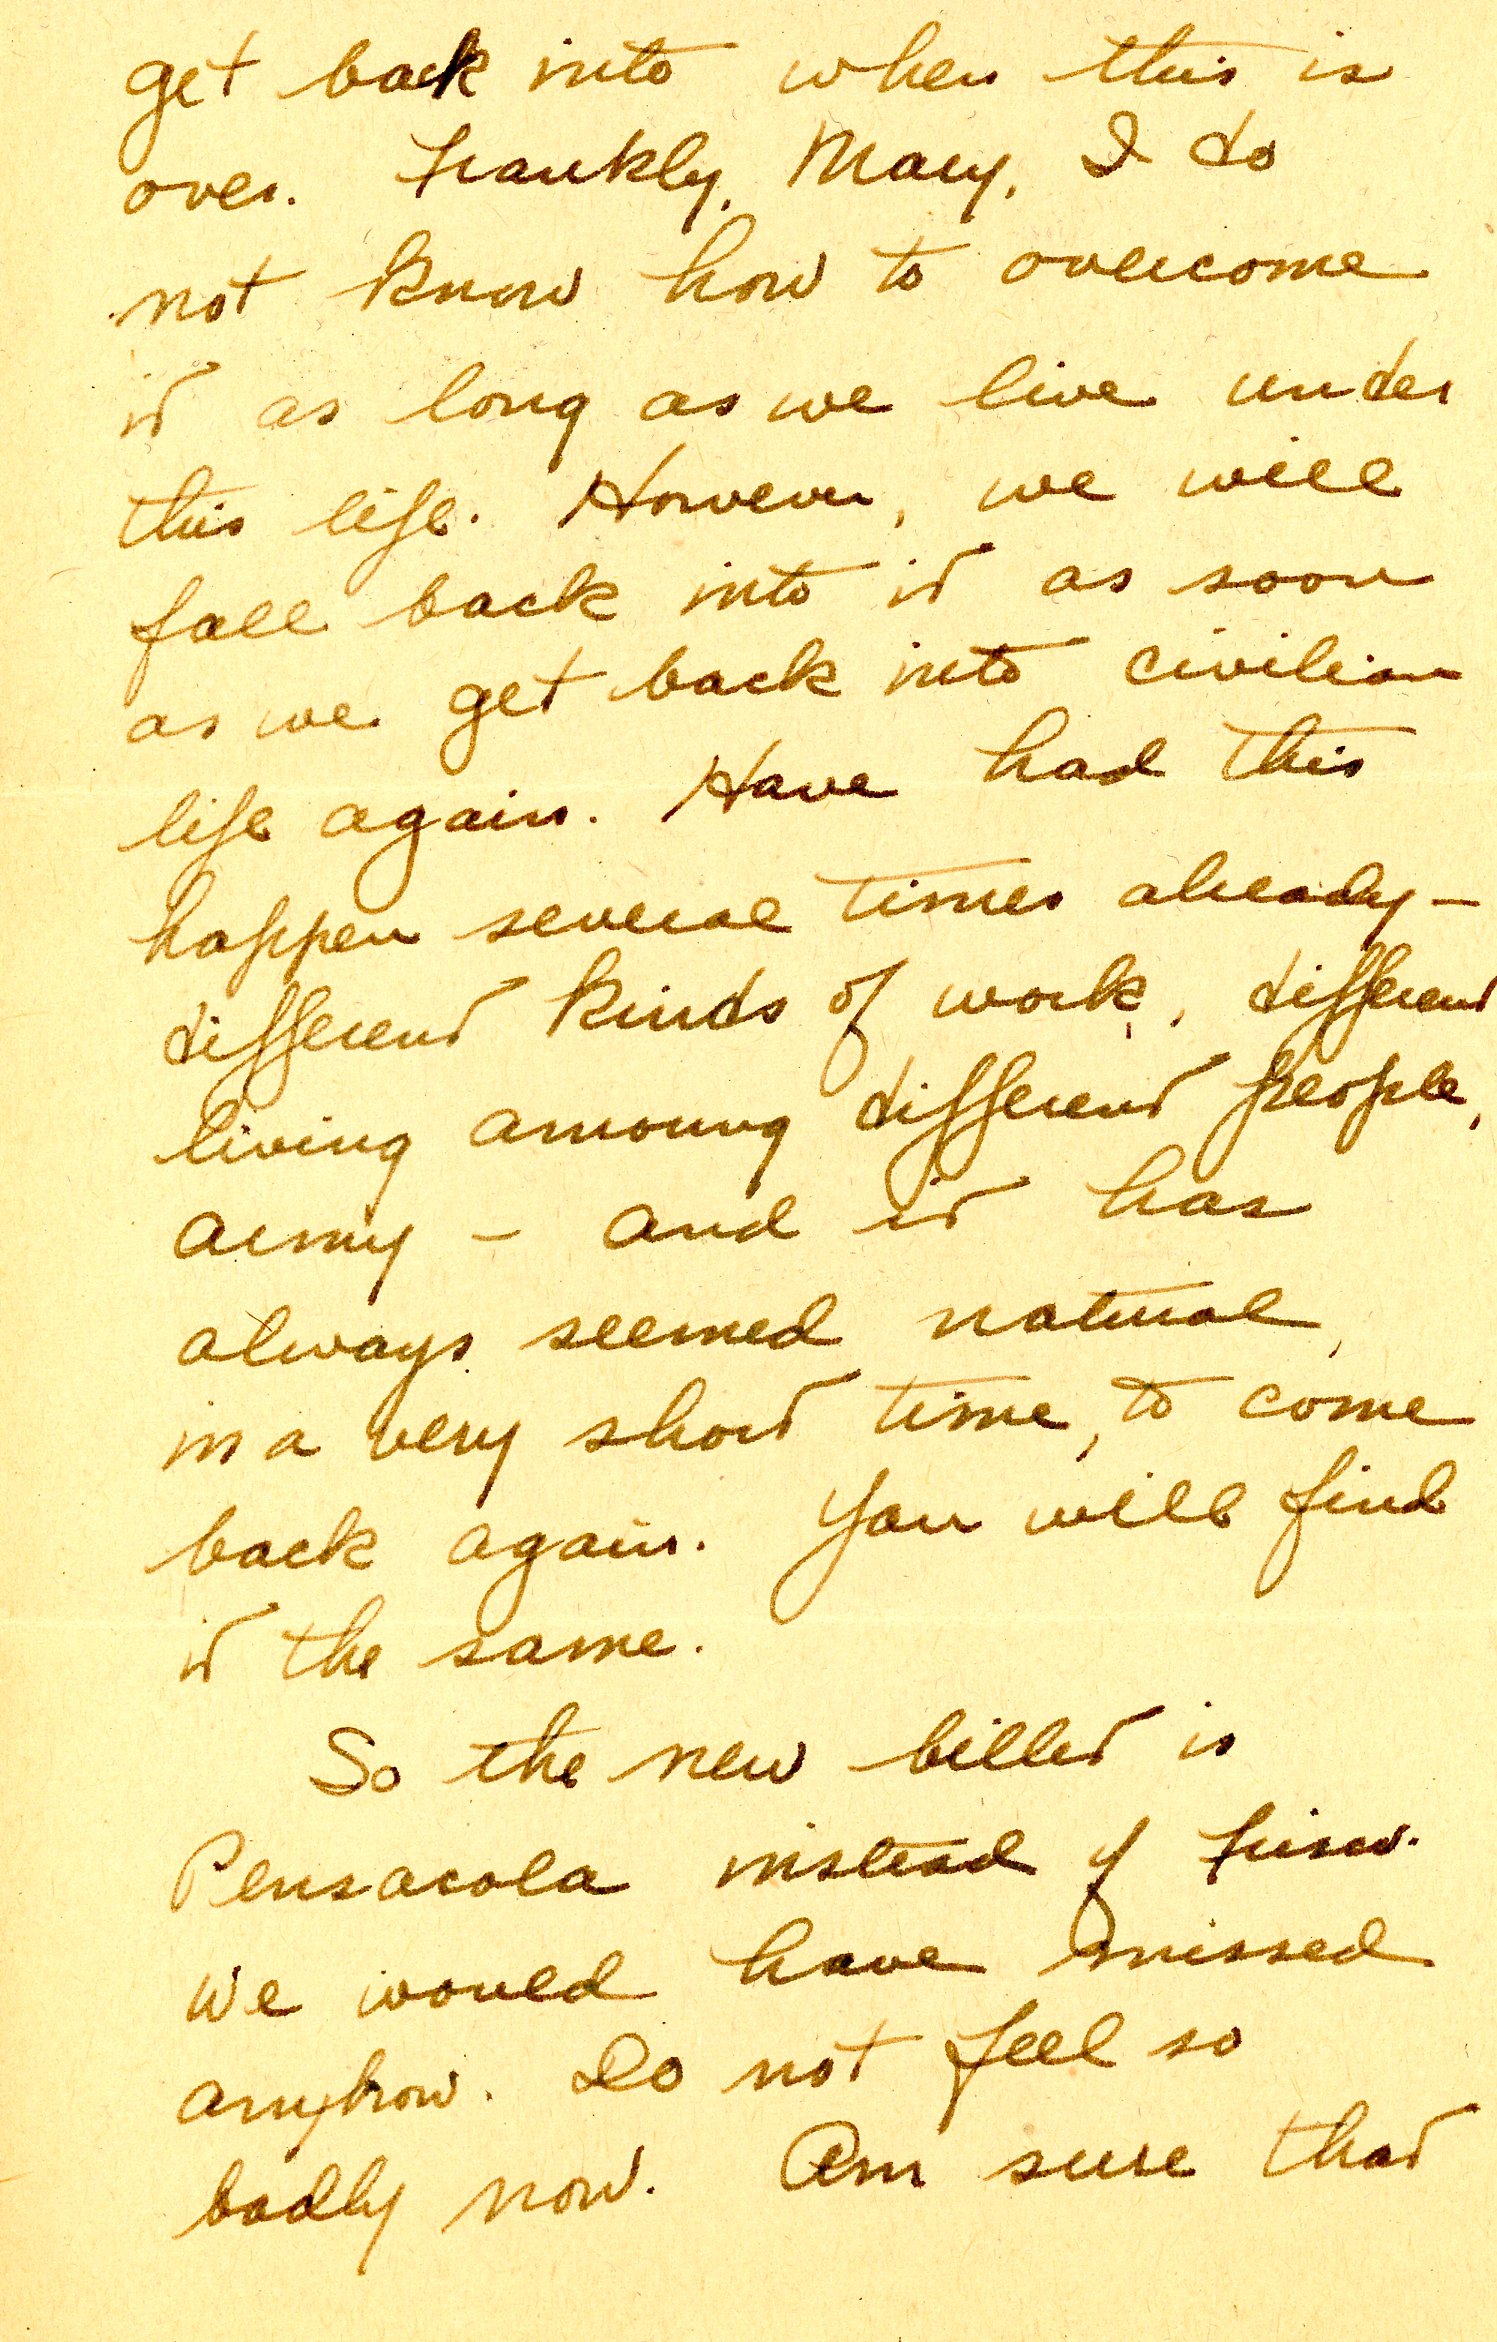 get back into when this is
over. Frankly, Mary, I do
not know how to overcome
it as long as we live under
this life. However, we will
fall back into it as soon
as we get back into civilian
life again. Have had this
happen several times already -
different kinds of work, different
living amoung different people,
army - and it has
always seemed natural,
in a very short time, to come
back again. You will find
it the same.
So the new billet is
Pensacola instead of Frisco.
We would have missed
anyhow. Do not feel so
badly now. Am sure that